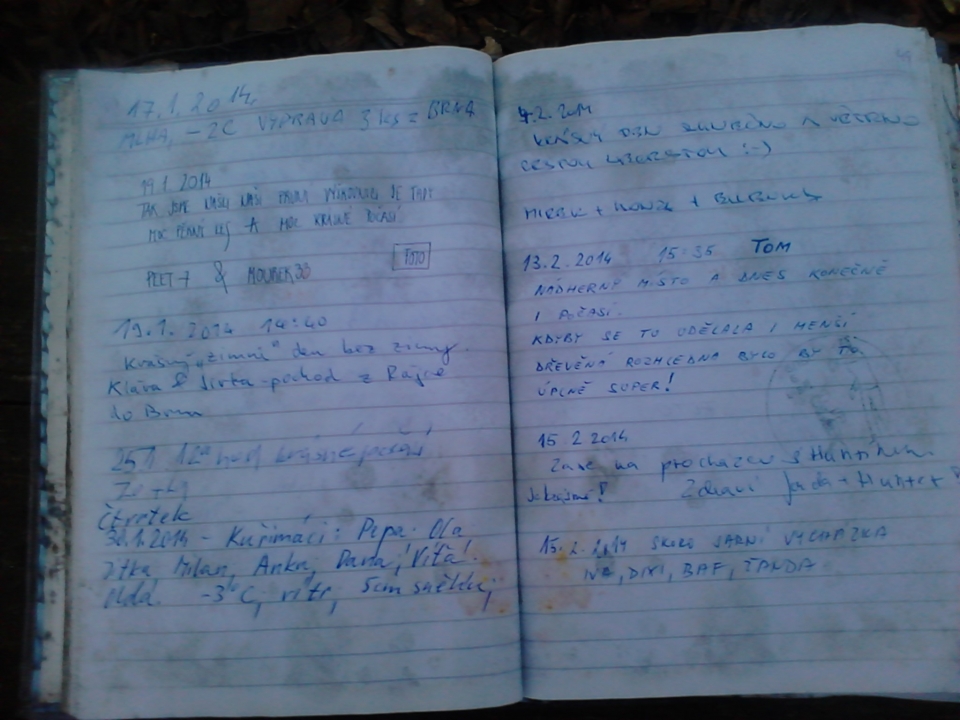 17.1.2014,
MLHA, -2C VÝPRAVA 3 ks z BRNA
19.1.2014
TAK JSME NAŠLI NAŠI PRVNÍ JE TAM
MOC PĚKNÝ LES A MOC KRÁSNÉ POČASÍ
PEET7 & MOUREK38 FOTO
19.1.2014 14:40
Krásný "zimní" den bez zimy.
Klára & Jirka - pochod z Rájce
do Brna
25.1. krásné počasí
Čtvrtek
30.1.2014 - Kuřimáci: Pepa, Ola
Jitka Milan, Anka, Dana, Víťa!
-3°C, vítr, 5cm sněhu,
4.2.2014
KRÁSNÝ DEN SLUNEČNO A VĚTRNO
CESTOU :-)
MIREK + +
13.2.2014 15:35 TOM
NÁDHERNÝ MÍSTO A DNES KONEČNĚ
I POČASÍ.
KDYBY SE TU UDĚLALA I MENŠÍ
DŘEVĚNÁ ROZHLEDNA BYLO BY TO
ÚPLNĚ SUPER!
15.2.2014
Zase na procházce s
Zdraví
15.2.2014 SKORO JARNÍ VYCHÁZKA
IVA, DIXI, BAF, ŤANDA